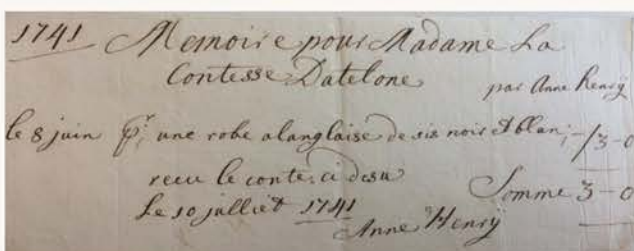 1741 Memoire pour Madame La
Contesse Datelone
par Anne Henrÿ
le 8 juin pr, une robe alanglaise de sis noir & blan; - / 3 - 0
receu le conte ci desu Somme 3 - 0
Le 10 julliet 1741
Anne Henrÿ